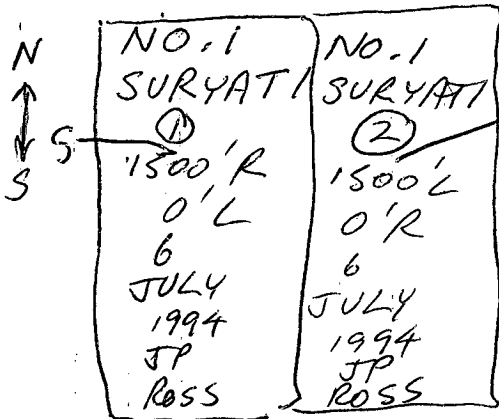 N
S
G
NO.1
SURYATI
1
1500'R
0'L
6
JULY
1994
JP
ROSS
NO.1
SURYATI
2
1500'L
0'R
6
JULY
1994
JP
ROSS